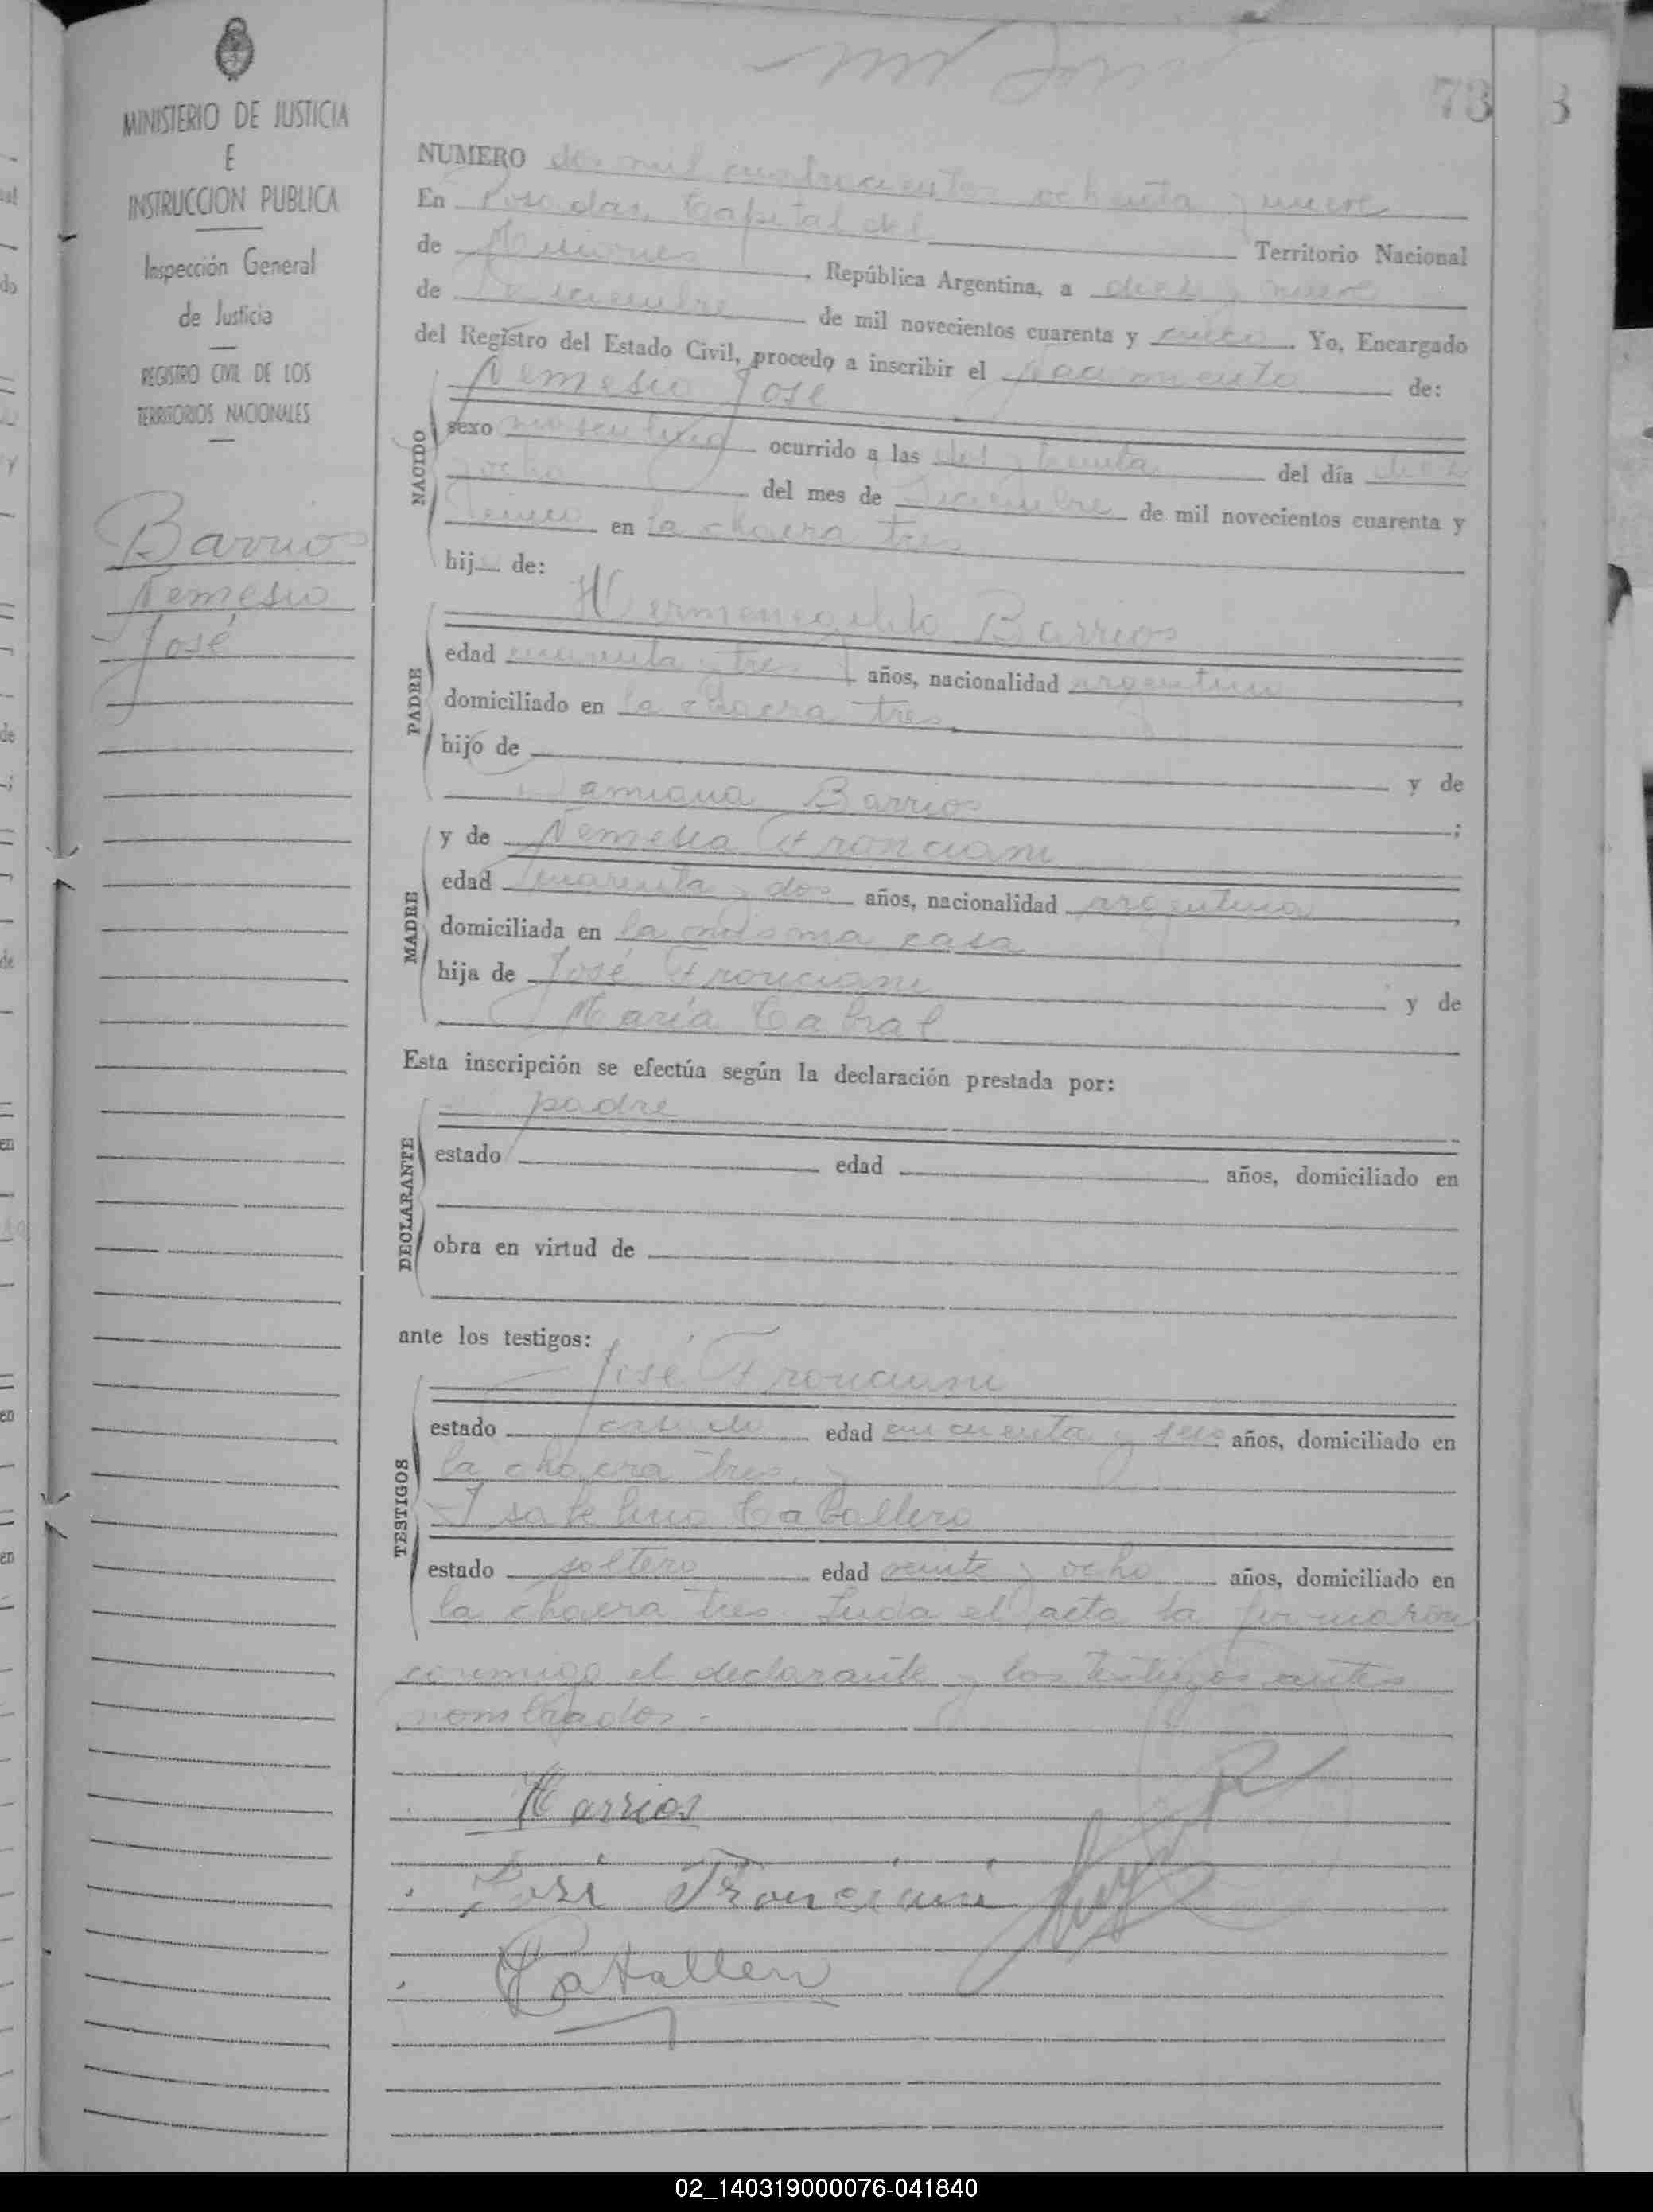 73
MINISTERIO DE JUSTICIA
E
INSTRUCCION PUBLICA
Inspección General
de Justicia
REGISTRO CIVIL DE LOS
TERRITORIOS NACIONALES
Barrios
Nemesio
José
NUMERO dos mil cuatrocientos ochenta y nueve
En Posadas, Capital del Territorio Nacional
de Misiones, República Argentina, a diez y nueve
de Diciembre de mil novecientos cuarenta y cinco. Yo, Encargado
del Registro del Estado Civil, procedo a inscribir el nacimiento de:
Nemesio José
NACIDO
sexo masculino ocurrido a las dos y treinta del día diez
y ocho del mes de Diciembre de mil novecientos cuarenta y
cinco en la chacra tres
hij de:
Hermenegildo Barrios
PADRE
edad cuarenta y tres años, nacionalidad argentino
domiciliado en la chacra tres
hijo de y de
Damiana Barrios ;
MADRE
y de Nemesia Fronciani
edad cuarenta y dos años, nacionalidad argentina
domiciliada en la misma casa
hija de José Fronciani y de
María Cabral
Esta inscripción se efectúa según la declaración prestada por:
padre
DECLARANTE
estado edad años, domiciliado en
obra en virtud de
ante los testigos:
José Fronciani
TESTIGOS
estado casado edad cincuenta y seis años, domiciliado en
la chacra tres, y
Isabelino Caballero
estado soltero edad veinte y ocho años, domiciliado en
la chacra tres. Leída el acta la firmaron
conmigo el declarante y los testigos antes
nombrados.-
HBarrios
José Fronciani
Caballero
02_140319000076-041840